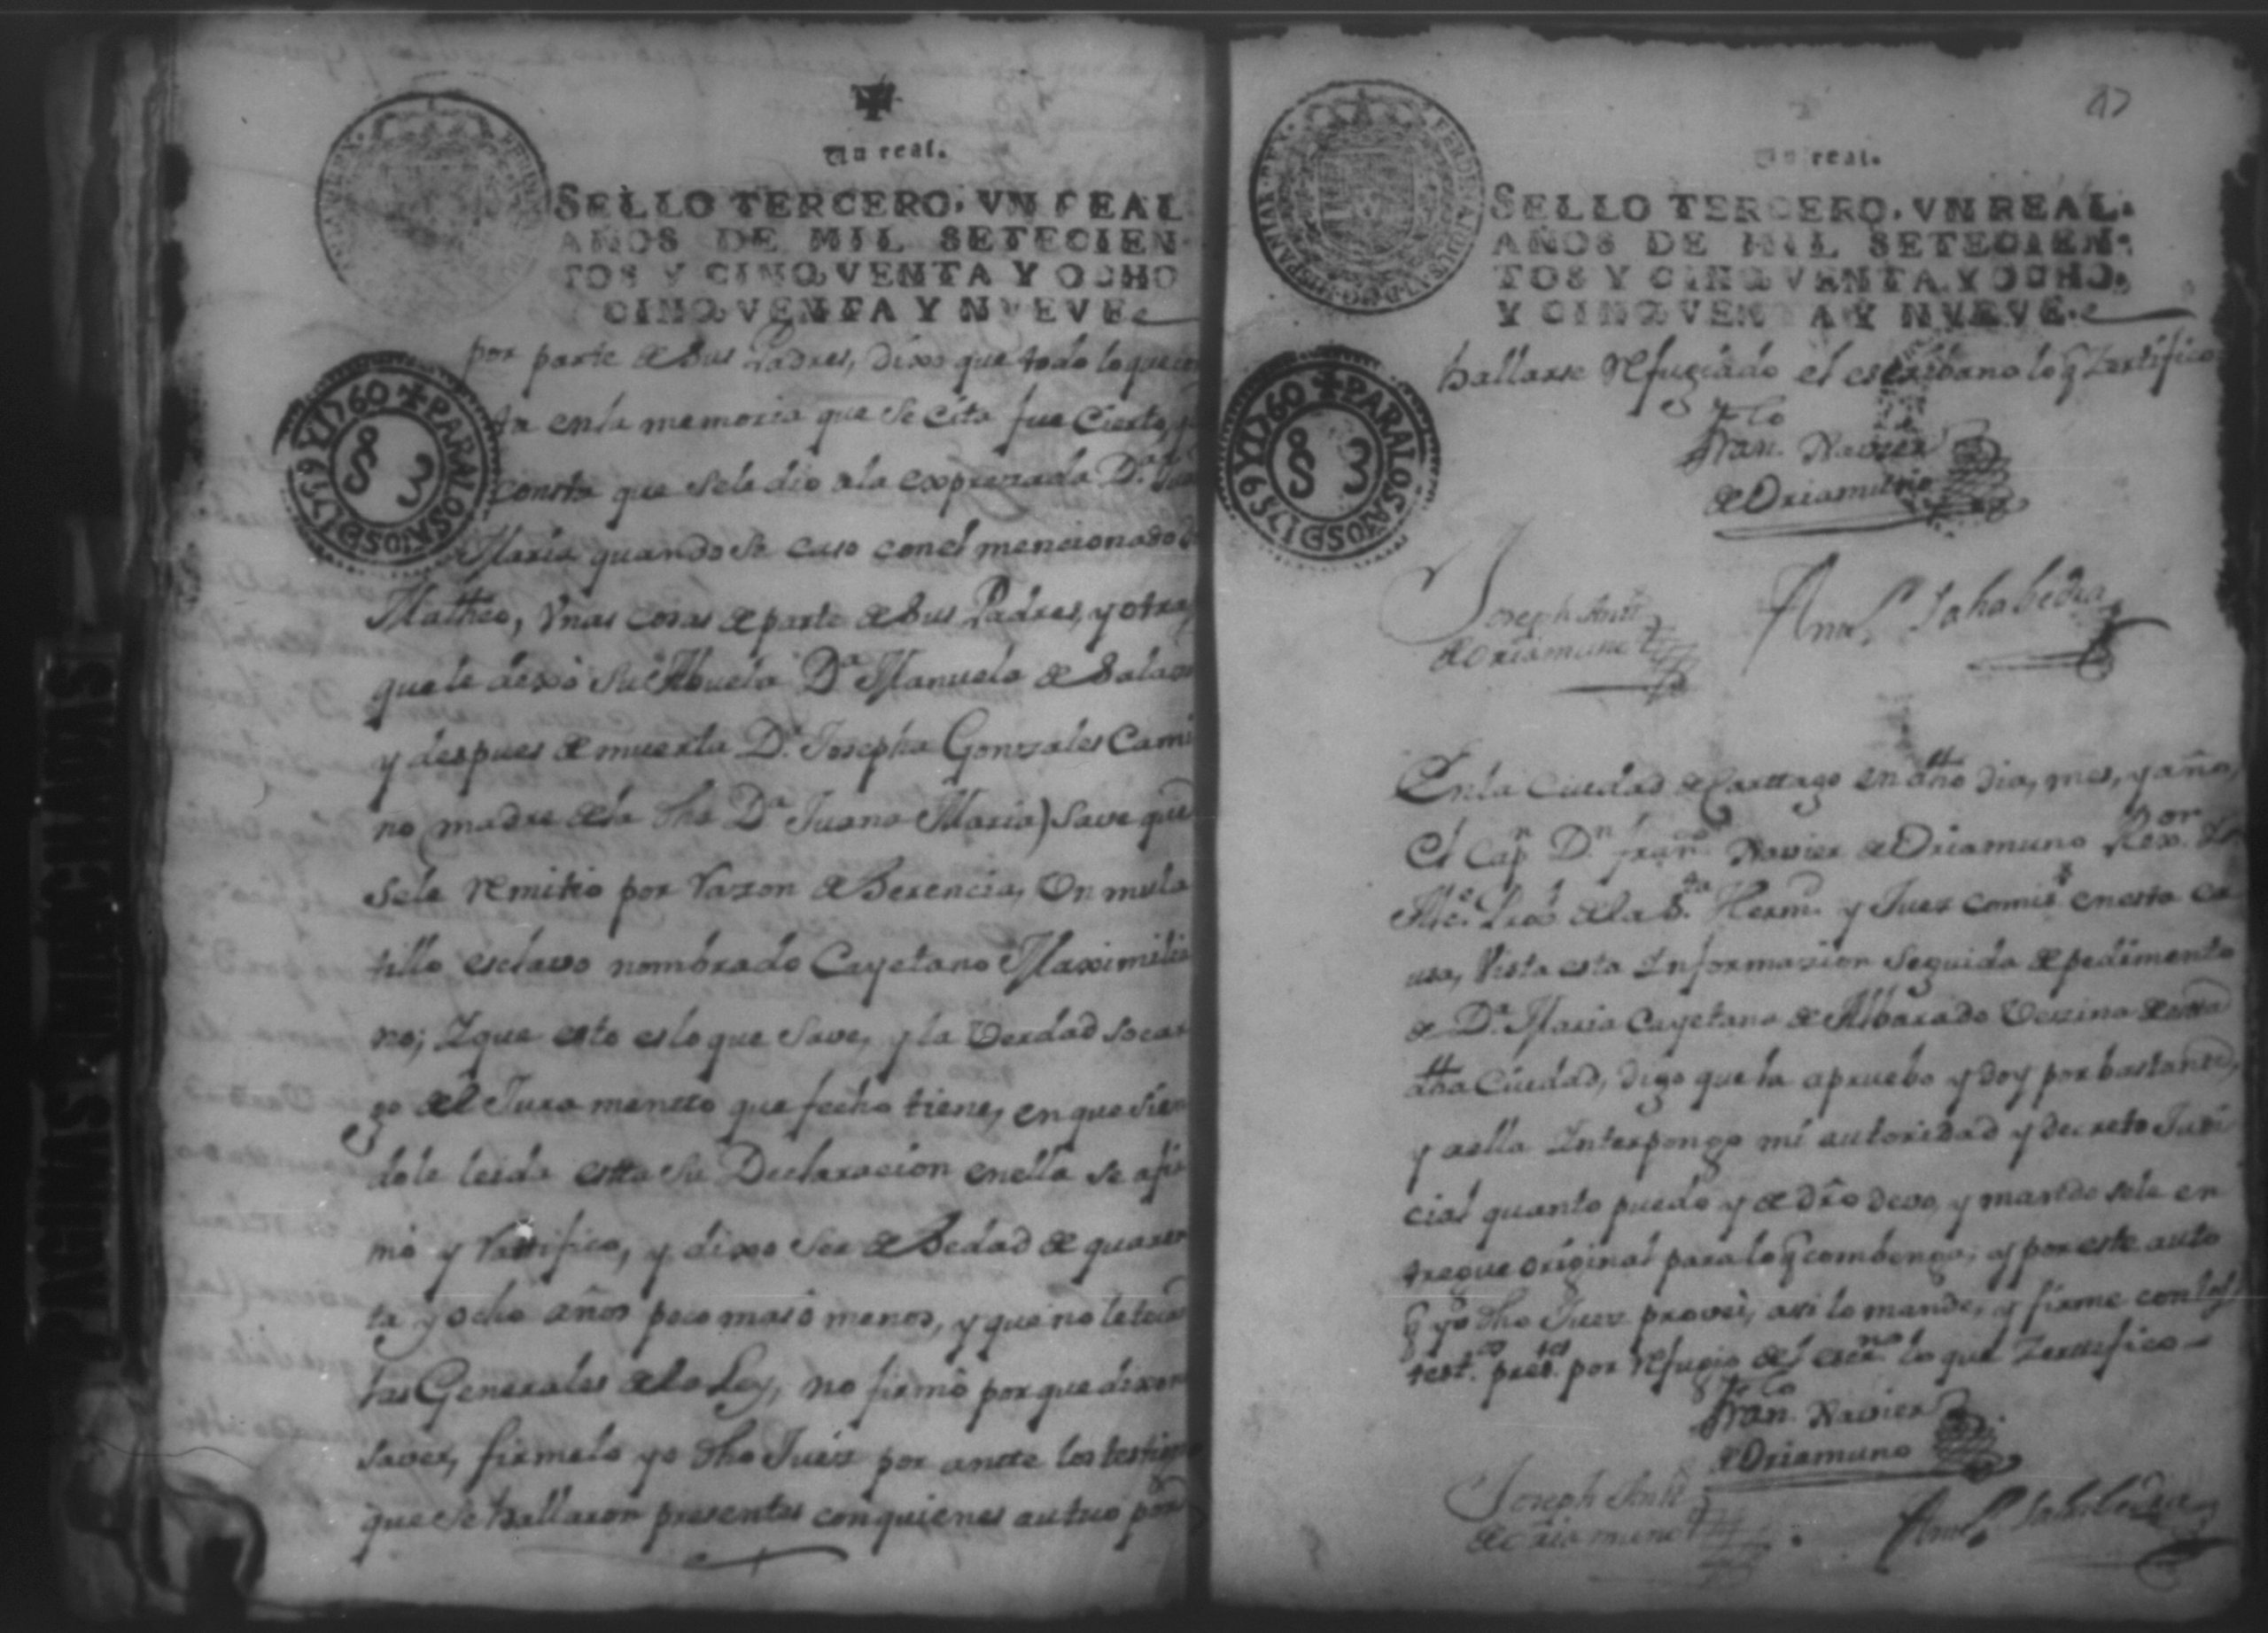 Un real.
SELLO TERCERO, VN REAL
AÑOS DE MIL SETECIEN
TOS Y CINQVENTA Y OCHO
CINQVENTA Y NVEVE
PARA LOS AÑOS D 1759 Y 1760
por parte de sus Padres, dixo que todo lo que
en la memoria que se cita fue cierto,
consta que se le dio a la expresada Dª
Maria quando se caso con el mencionado
Matheo, Vnas cosas de parte de sus Padres, y otra
que le dexo su Abuela Dª Manuela de Salaza
y despues de muerta Dª Josepha Gonzales Cami
no (madre de la dha Dª Juana Maria) save que
se le remitio por razon de Herencia, Un mula
tillo esclavo nombrado Cayetano Maximilia
no; Y que esto es lo que save, y la Verdad so car
go del Juramentto que fecho tiene, en que sien
dole leida estta su Declaracion en ella se afir
mò y rattifico, y dixo ser de Hedad de quaren
ta y ocho años poco mas ò menos, y que no le toca
las Generales de la Ley, no firmò porque dixo n
saver, firmelo yo dho Juez por antte los testig
que se hallaron presentes con quienes autuo por
PAGINAS DETERIORADAS
Un real.
SELLO TERCERO, VN REAL.
AÑOS DE MIL SETECIEN-
TOS Y CINQVENTA Y OCHO,
Y CINQVENTA Y NVEVE.
PARA LOS AÑOS D 1759 Y 1760
hallarse refugiado el escribano lo q Zertifico
Fran.co Xavier
de Oriamuno
Joseph Antt
de Oriamuno
En la Ciudad de Carttago en dtho dia, mes, y año,
El Capn Dn Frano Xavier de Oriamuno Rexor
Alce Prol de la Sta Hermd y Juez comiso en esta ca
usa, Vista esta Informazion seguida de pedimento
de Dª Maria Cayetana de Albarado Vezina de esta
dtha Ciudad, digo que la apruebo y doy por bastante,
y a ella Interpongo mi autoridad y decreto Judi
cial quanto puedo y de dro devo, y mando se le en
tregue original para lo q combenga; y por este auto
q yo dho Juez provei, asi lo mande, y firme con los
testos press por refugio del escrno lo que Zerttifico
Fran.co Xavier
de Oriamuno
Joseph Antt
de Oriamuno